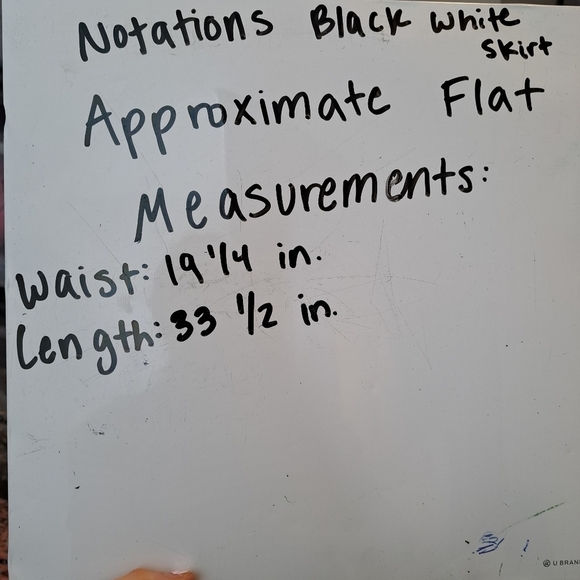 Notations Black White
Skirt
Approximate Flat
Measurements:
Waist: 19 1/4 in.
Length: 33 1/2 in.
U BRAN